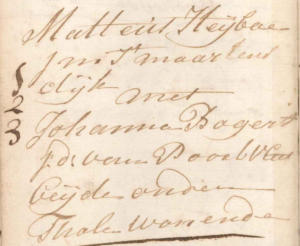 Matteus Heyboe
j m St maartens
dijk
1 2 3
met
Johanna Bogert
j:d: van Poortvliet
beijde onder
Thole woonende